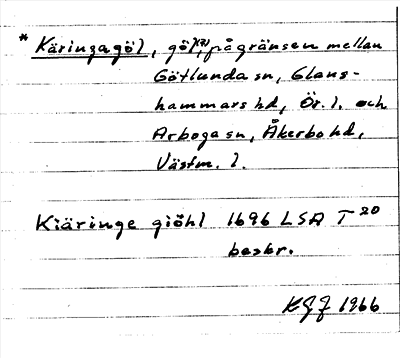 * Käringagöl, göl(?), på gränsen mellan
Götlunda sn, Glans-
hammars hd, Ör. l. och
Arboga sn, Åkerbo hd,
Västm. l.
Kiäringe giöhl 1696 LSA T 20
beskr.
KGJ 1966